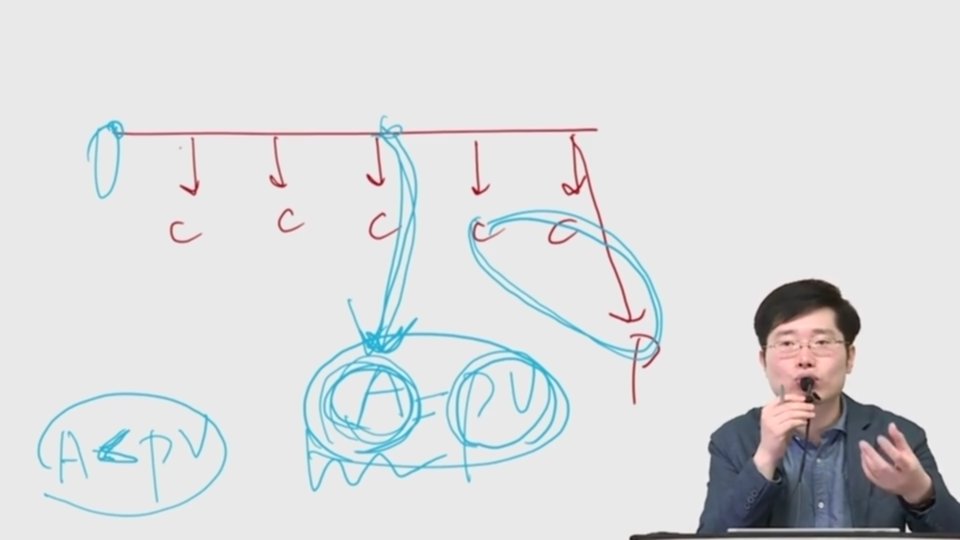 C C C C C
P
A = PV
A < PV